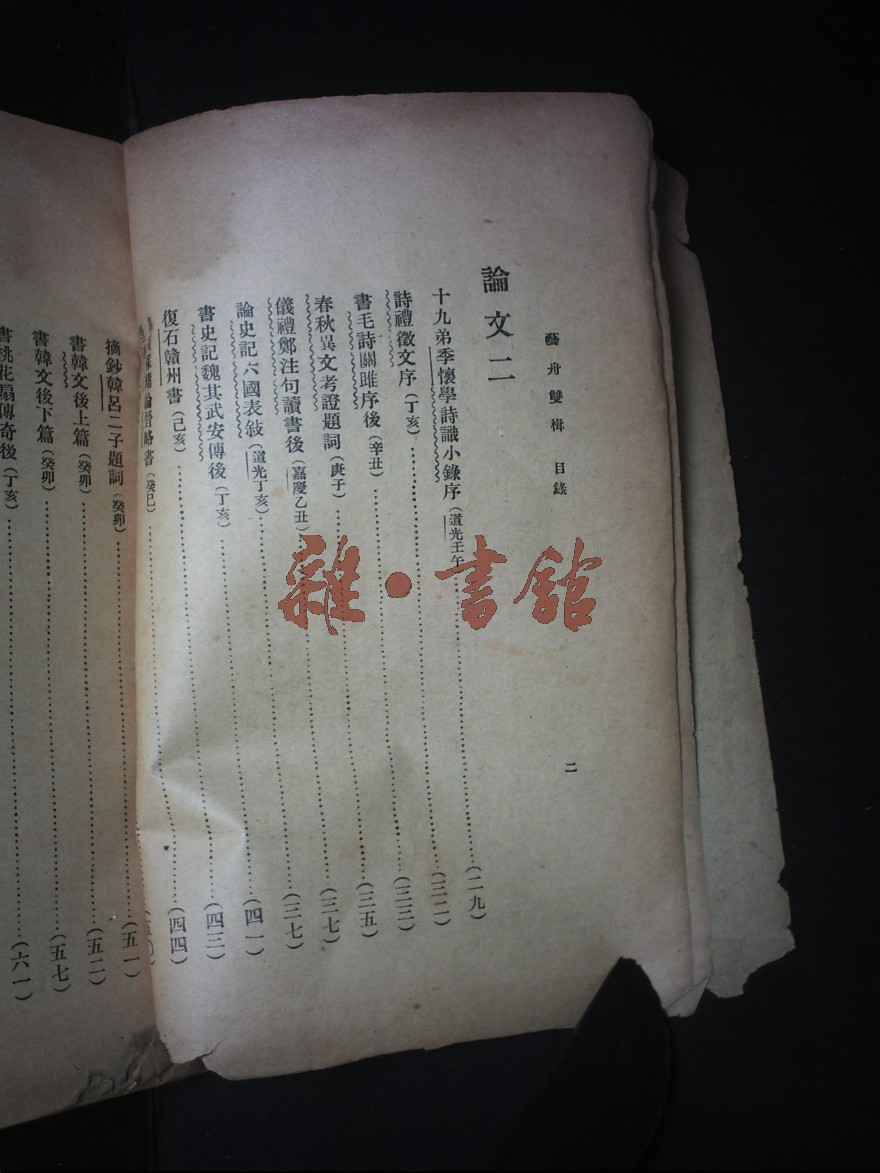 藝舟雙楫 目錄
二
論文二
十九弟季懷學詩識小錄序(道光壬午)……(二九)
詩禮徵文序(丁亥)……(三二)
書毛詩關雎序後(辛丑)……(三三)
春秋異文考證題詞(庚子)……(三五)
儀禮鄭注句讀書後(嘉慶乙丑)……(三七)
論史記六國表敍(道光丁亥)……(三七)
書史記魏其武安傳後(丁亥)……(四一)
復石贛州書(己亥)……(四三)
論證略書(癸巳)……(四四)
摘鈔韓呂二子題詞(癸卯)……(五一)
書韓文後上篇(癸卯)……(五二)
書韓文後下篇(癸卯)……(五七)
書桃花扇傳奇後(丁亥)……(六一)
雜·書館